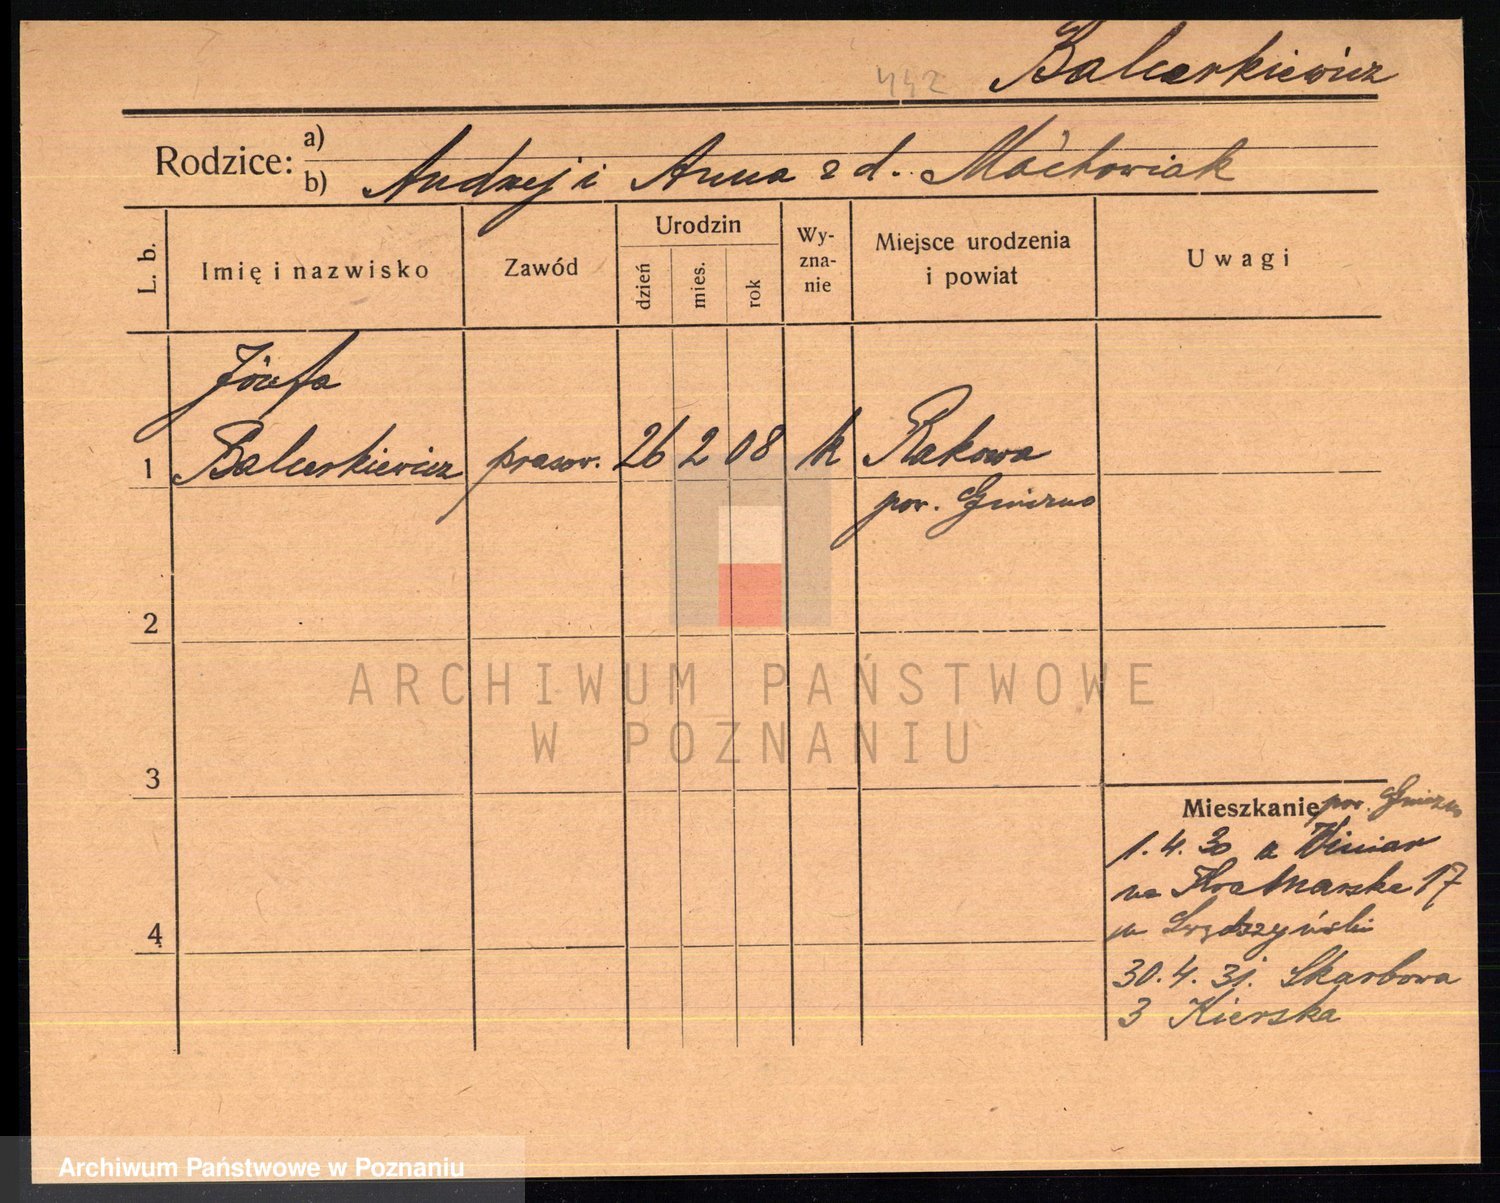 442 Balcerkiewicz
Rodzice: a)
b) Andrzej i Anna z d. Maćkowiak
L. b.
Imię i nazwisko
Zawód
Urodzin
dzień
mies.
rok
Wy-
zna-
nie
Miejsce urodzenia
i powiat
Uwagi
Józefa
1 Balcerkiewicz prasow. 26 2 08 k Rakowa
pow. Gniezno
2
3
4
Mieszkanie pow. Gniezno
1.4.30 z Winiar
na 17
30.4.31. Skarbowa
3 Kierska
ARCHIWUM PAŃSTWOWE
W POZNANIU
Archiwum Państwowe w Poznaniu